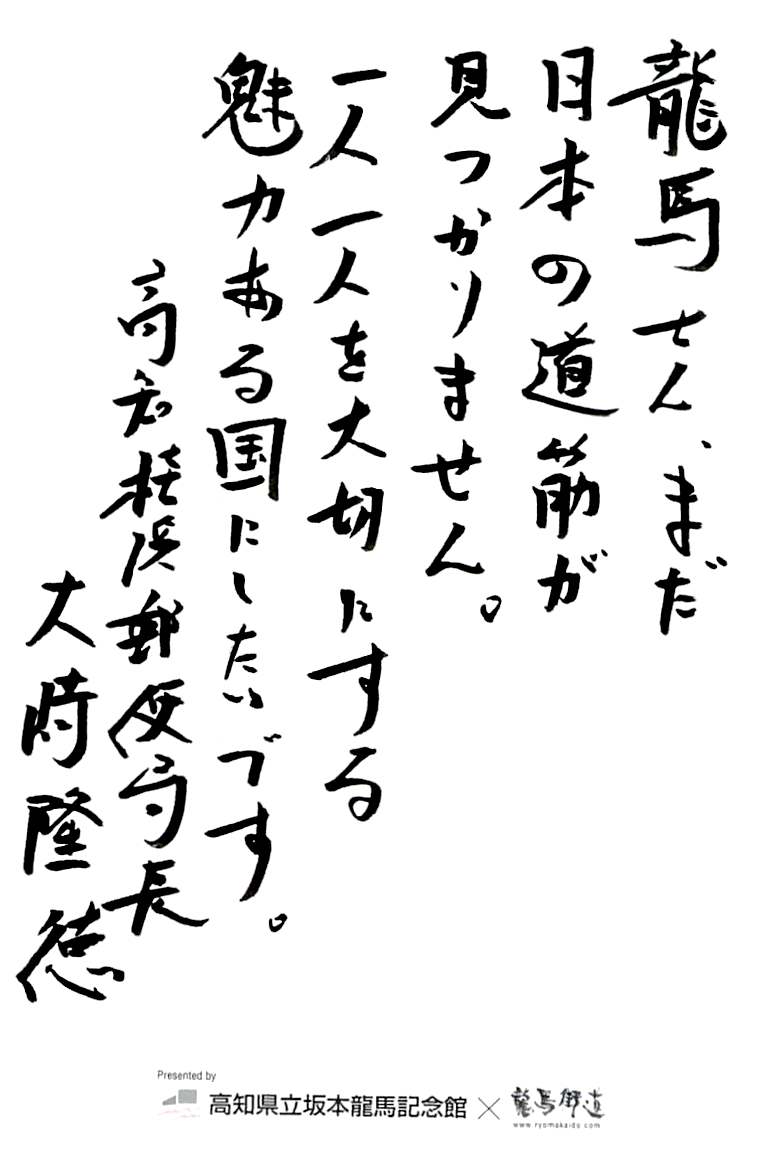 龍馬せん、まだ
日本の道筋が
見つかりません。
一人一人を大切にする
魅力ある国にしたいです。
高知桂浜郵便局長
大時隆徳
Presented by
高知県立坂本龍馬記念館×龍馬街道
www.ryomakaido.com